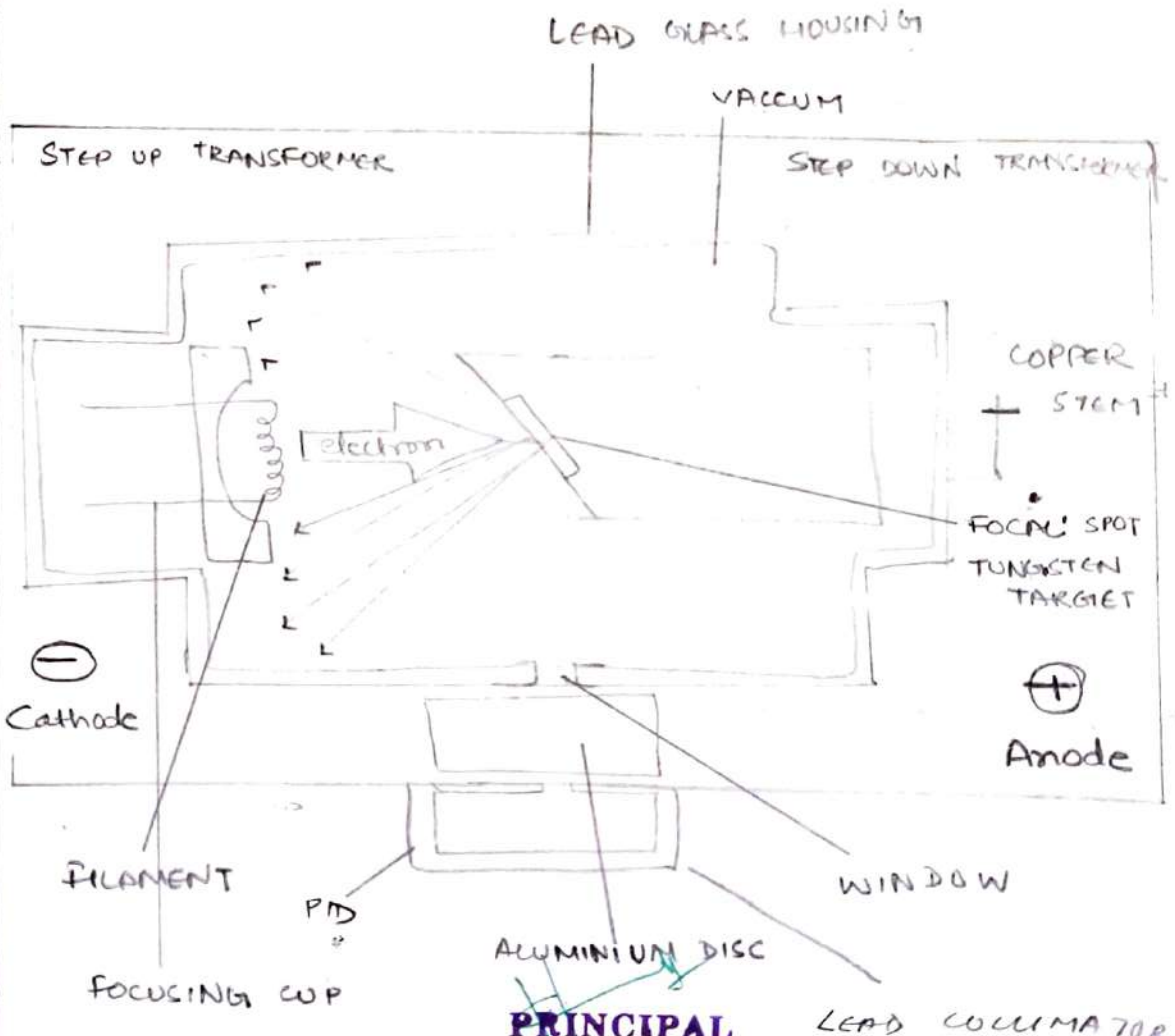 LEAD GLASS HOUSING
VACCUM
STEP UP TRANSFORMER
STEP DOWN TRANSFORMER
COPPER
STEM
electron
FOCAL SPOT
TUNGSTEN
TARGET
Cathode
Anode
FILAMENT
PID
WINDOW
ALUMINIUM DISC
FOCUSING CUP
PRINCIPAL
LEAD COLLIMATOR